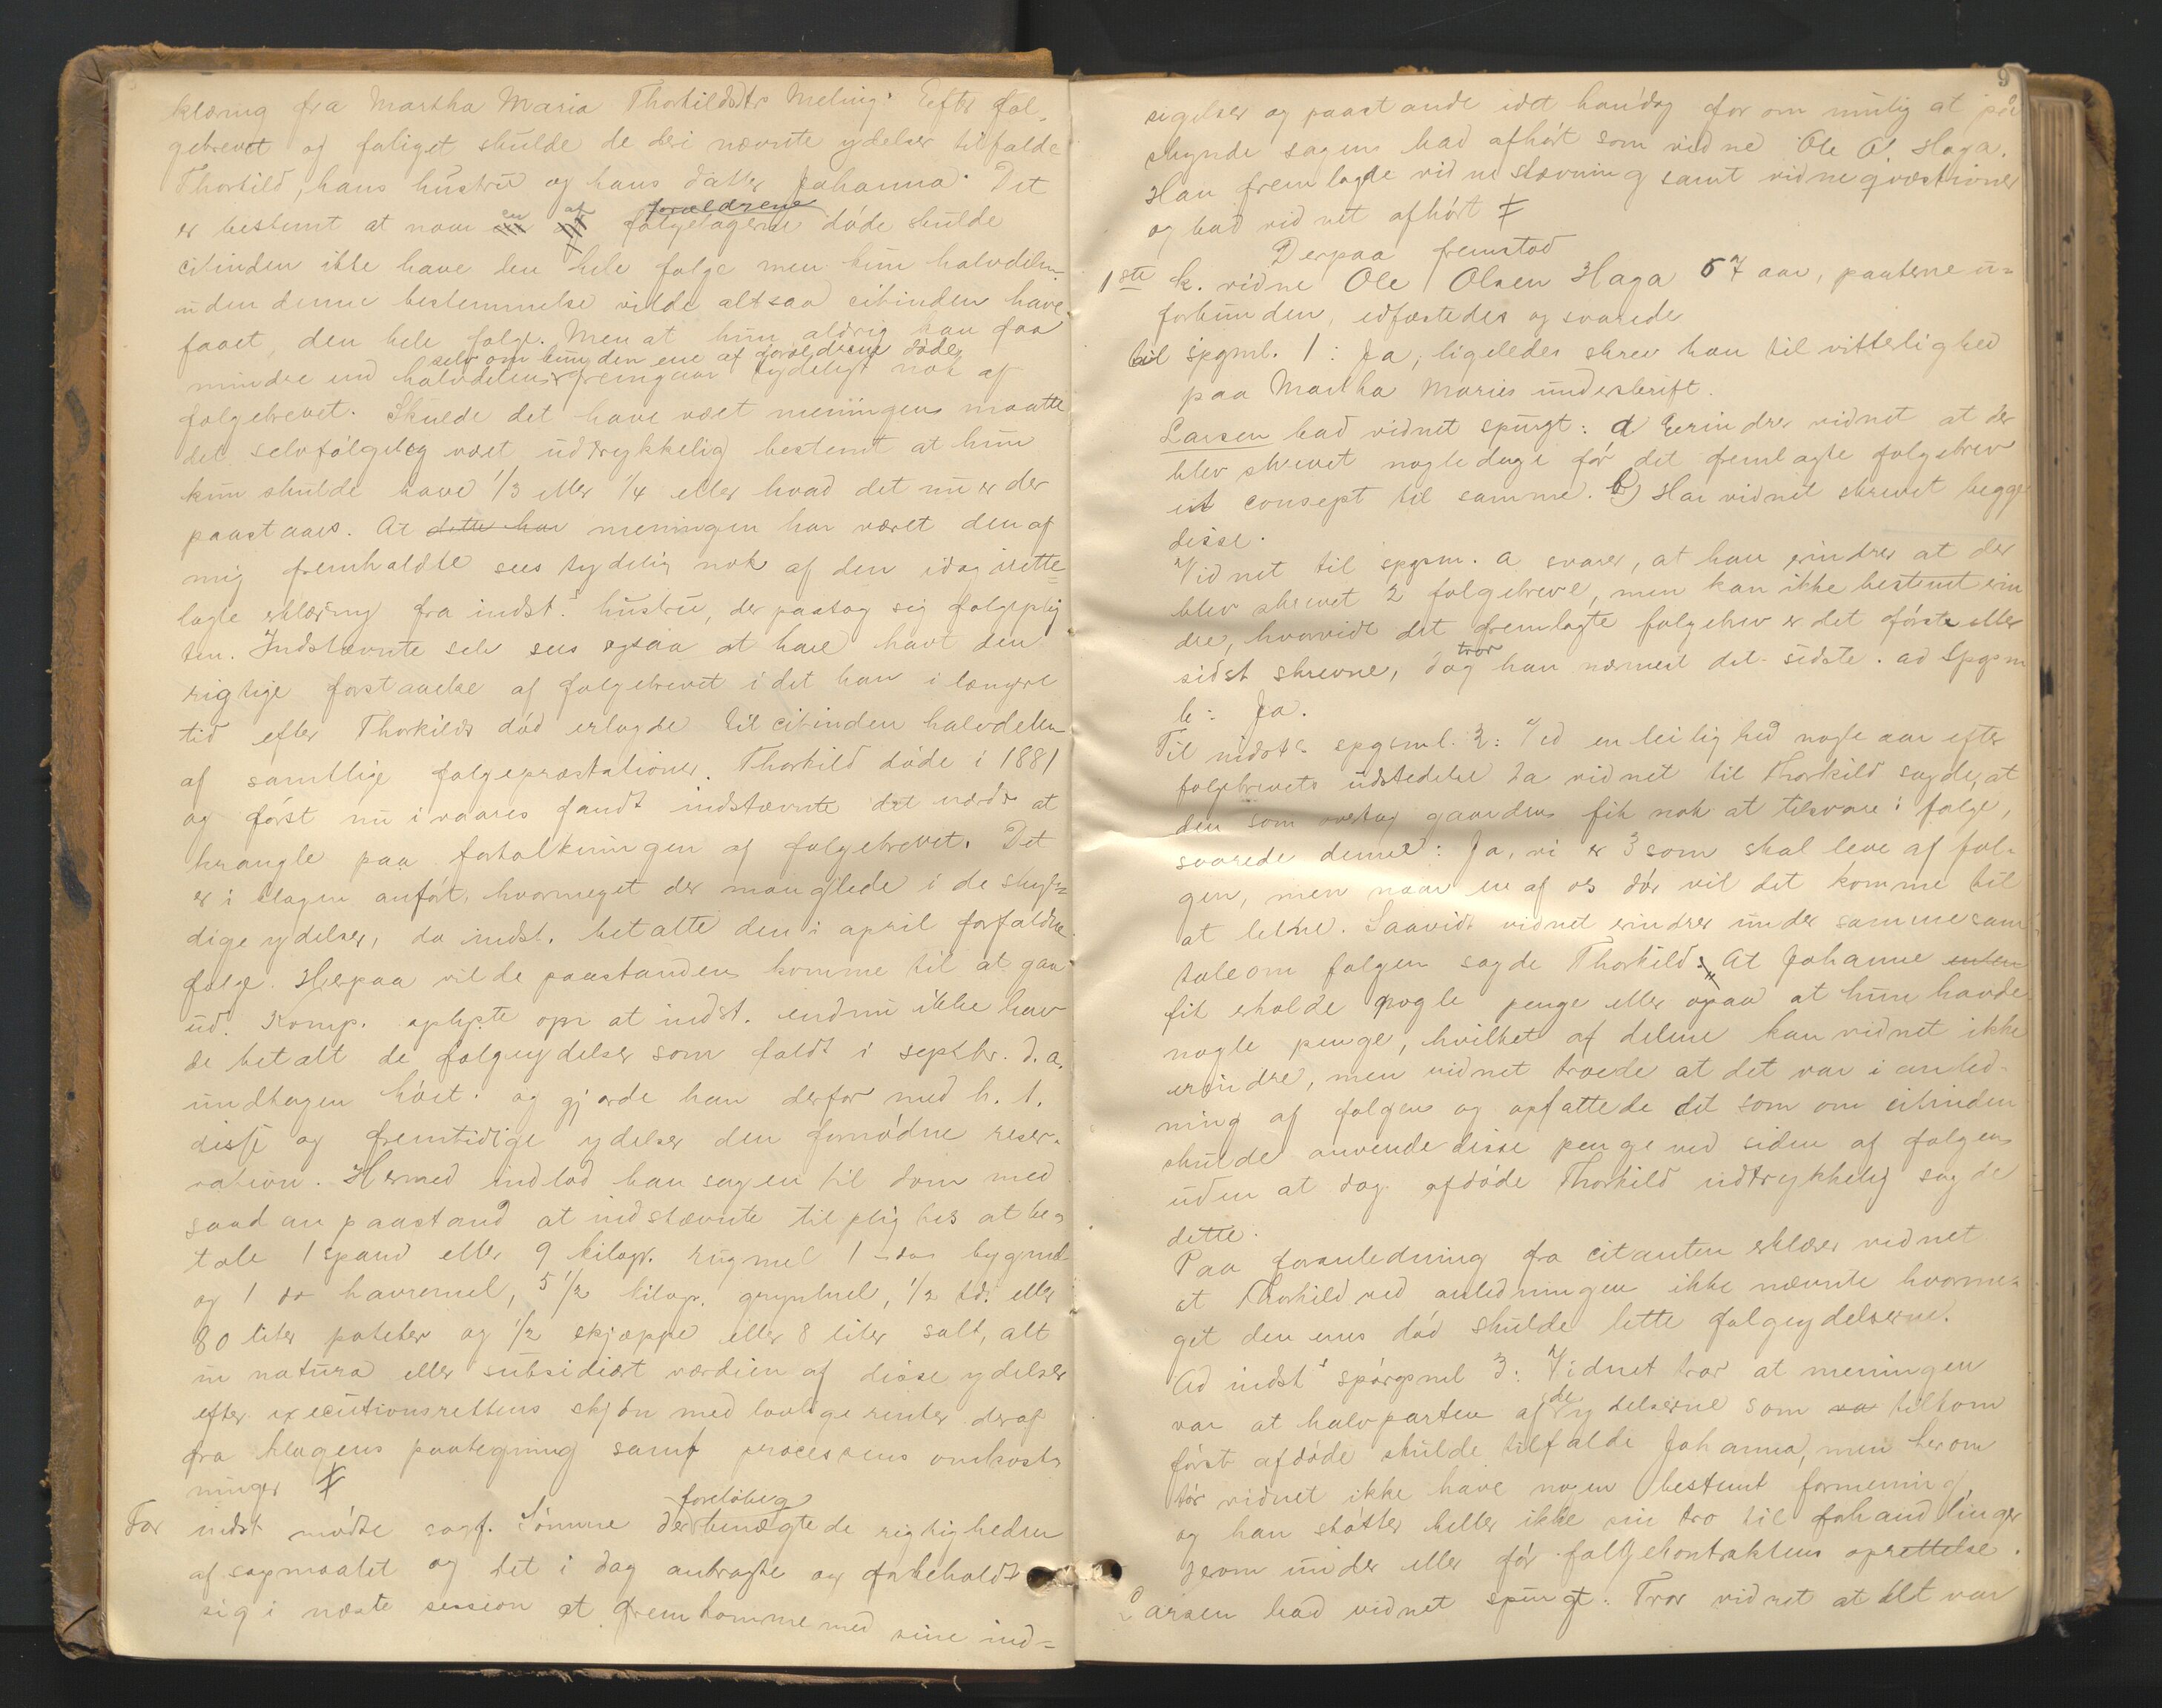 klæring fra Martha Maria Thorkildsdtr Meling. Efter fol-
gebrevet og foliget skulde de deri nævnte ydelser tilfalde
Thorkild, hans hustru og hans datter Johanna. Det
er bestemt at naar en af forældrene folgetagerne døde skulde
citinden ikke have den hele folge men kun halvdelen
uden denne bestemmelse vilde altsaa citinden have
faaet den hele folge. Men at hun aldrig kan faa
selv om kun den ene af forældrene døde
mindre end halvdelen fremgaar tydeligt nok af
folgebrevet. Skulde det have vært meningen maatte
det selvfølgeleg vært udtrykkelig bestemt at hun
kun skulde have 1/3 eller 1/4 eller hvad det nu er der
paastaaes. At dette har meningen har været den af
mig fremholdte sees tydelig nok af den idag irette-
lagte erklæring fra indst.s hustru, der paatog sig folgeplig
ten. Indstævnte selv sees ogsaa at have havt den
rigtige forstaaelse af folgebrevet i det han i længre
tid efter Thorkilds død erlagde til citinden halvdelen
af samtlige folgepræstationer. Thorkild døde i 1881
og først nu i vaares fandt indstævnte det værdt at
krangle paa fortolkningen af folgebrevet. Det
er i klagen anført, hvormeget der manglede i de skyl-
dige ydelser, da indst. betalte den i april forfaldne
folge. Herpaa vilde paastanden komme til at gaa
ud. Komp. oplyste om at indst. endnu ikke hav
de betalt de folgeydelser som faldt i septbr. d. a.
undtagen høet. og gjorde han derfor med h. t.
disse og fremtidige ydelser den fornødne reser-
vation. Hermed indlod han sagen til dom med
saadan paastand at indstævnte tilpligtes at be-
tale 1 spand eller 9 kilogr. rugmel 1 do bygmel
og 1 do havremel, 5 1/2 kilogr. grynmel, 1/2 td. eller
80 liter poteter og 1/2 skjæppe eller 8 liter salt, alt
in natura eller subsidiært værdien af disse ydelser
efter executionsrettens skjøn med lovlige renter deraf
fra klagens paategning samt processens omkost-
ninger
For indst. mødte sagf. Sømme der foreløbeg benægtede rigtigheden
af søgsmaalet og det i dag anbragte og forbeholdt
sig i næste session at fremkomme med sine ind-
9
sigelser og paastande idet han dog for om mulig at paa
skynde sagen bad afhørt som vidne Ole O. Haga.
Han fremlagde vidnestævning samt vidneqvæstioner
og bad vidnet afhørt
Derpaa fremstod
1ste k. vidne Ole Olsen Haga 57 aar, parterne u-
forbunden, edfæstedes og svarede
til spgml. 1: Ja, ligeledes skrev han til vitterlighed
paa Martha Maries underskrift.
Larsen bad vidnet spurgt: a Erindrer vidnet at der
blev skrevet nogle dage før det fremlagte folgebrev
et consept til samme. b) Har vidnet skrevet begge
disse.
Vidnet til spgsm. a svarer, at han erindrer at der
blev skrevet 2 folgebreve, men kan ikke bestemt erin
dre, hvorvidt det fremlagte folgebrev er det første eller
sidst skrevne, dog tror han nærmest det sidste. ad Spgsm
b: Ja.
Til indst.s spgsml. 2: Ved en leilighed nogle aar efter
folgebrevets udstedelse da vidnet til Thorkild sagde, at
den som overtog gaarden fik nok at tilsvare i folge,
svarede denne: Ja, vi er 3 som skal leve af fol-
gen, men naar en af os dør vil det komme til
at lettne. Saavidt vidnet erindrer under samme sam-
tale om folgen sagde Thorkild: At Johanne enten
fik eholde nogle penge eller ogsaa at hun havde
nogle penge, hvilket af delene kan vidnet ikke
erindre, men vidnet troede at det var i anled-
ning af folgen og opfattede det som om citinden
skulde anvende disse penge ved siden af folgen
uden at dog afdøde Thorkild udtrykkelig sagde
dette.
Paa foranledning fra citanten erklærer vidnet
at Thorkild ved anledningen ikke nævnte hvorme-
get den enes død skulde lette folgeydelserne.
Ad indst.s spørgsml 3: Vidnet tror at meningen
var at halvparten af de ydelserne som va tilkom
først afdøde skulde tilfalde Johanna, men herom
tør vidnet ikke have nogen bestemt formening,
og han støtter heller ikke sin tro til forhandlinger
herom under eller før folgekontraktens oprettelse.
Larsen bad vidnet spurgt: Tror vidnet at det var